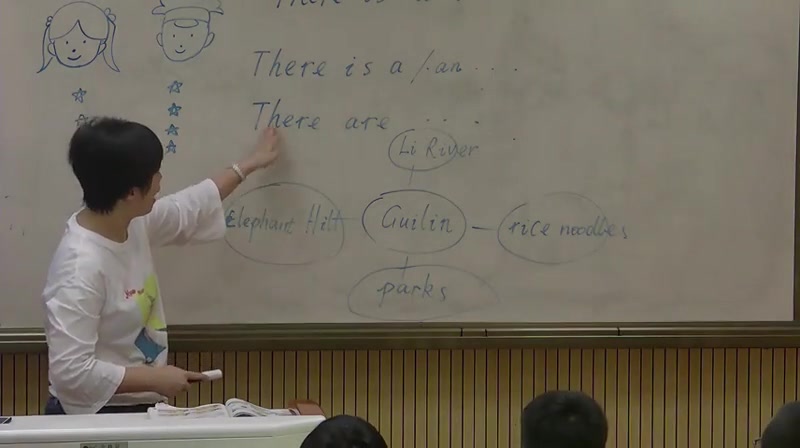 There is a
There is a /.an ...
There are ...
Li River
Elephant Hill
Guilin
rice noodles
parks